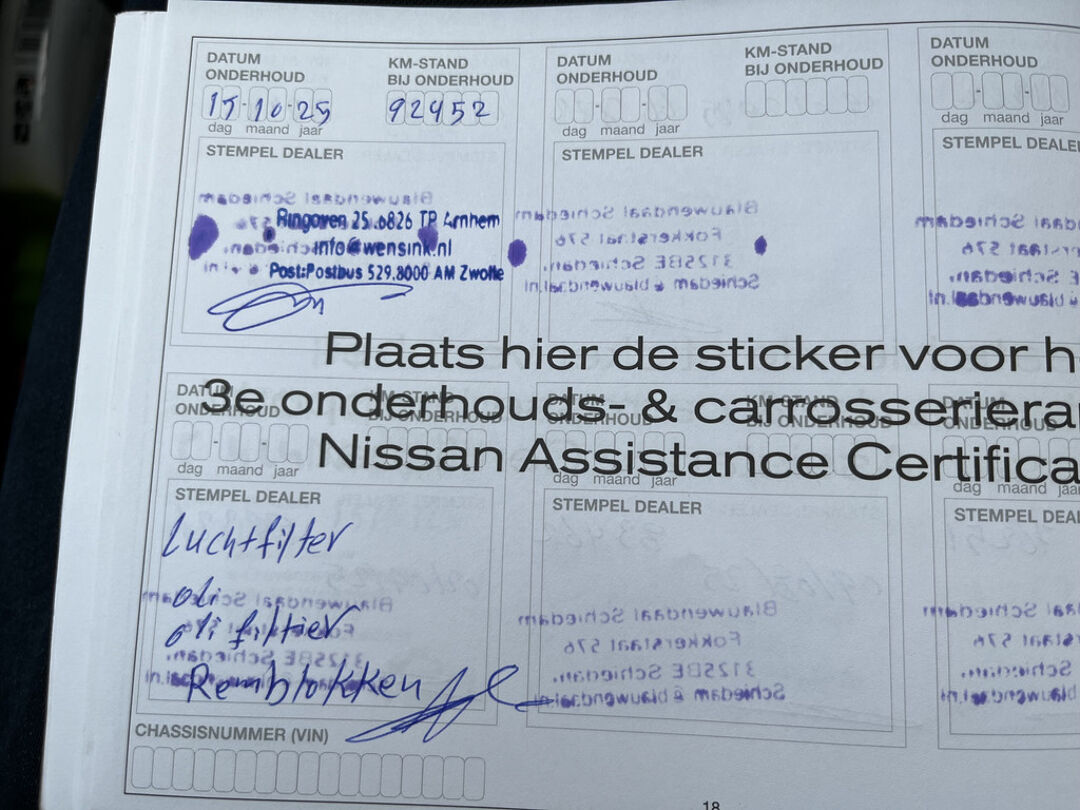 DATUM
ONDERHOUD
KM-STAND
BIJ ONDERHOUD
15-10-25
92452
dag maand jaar
STEMPEL DEALER
Ringoven 25.6826 TP Arnhem
info@wensink.nl
Post:Postbus 529.8000 AM Zwolle
DATUM
ONDERHOUD
KM-STAND
BIJ ONDERHOUD
dag maand jaar
STEMPEL DEALER
Blauwendaal Schiedam
Fokkerstaat 576
3125BE Schiedan.
Schiedam @ blauwendaal.nl
DATUM
ONDERHOUD
dag maand jaar
STEMPEL
Plaats hier de sticker voor
3e onderhouds- &
Nissan Assistance
DATUM
ONDERHOUD
KM-STAND
BIJ ONDERHOUD
dag maand jaar
STEMPEL DEALER
Luchtfilter
oli
oli filtier
Remblokken
DATUM
ONDERHOUD
KM-STAND
BIJ ONDERHOUD
dag maand jaar
STEMPEL DEALER
Blauwendaal Schiedam
Fokkerstaat 576
3125BE Schiedam
Schiedam @ blauwendaal.nl
DATUM
ONDERHOUD
dag maand jaar
STEMPEL
CHASSISNUMMER (VIN)
18